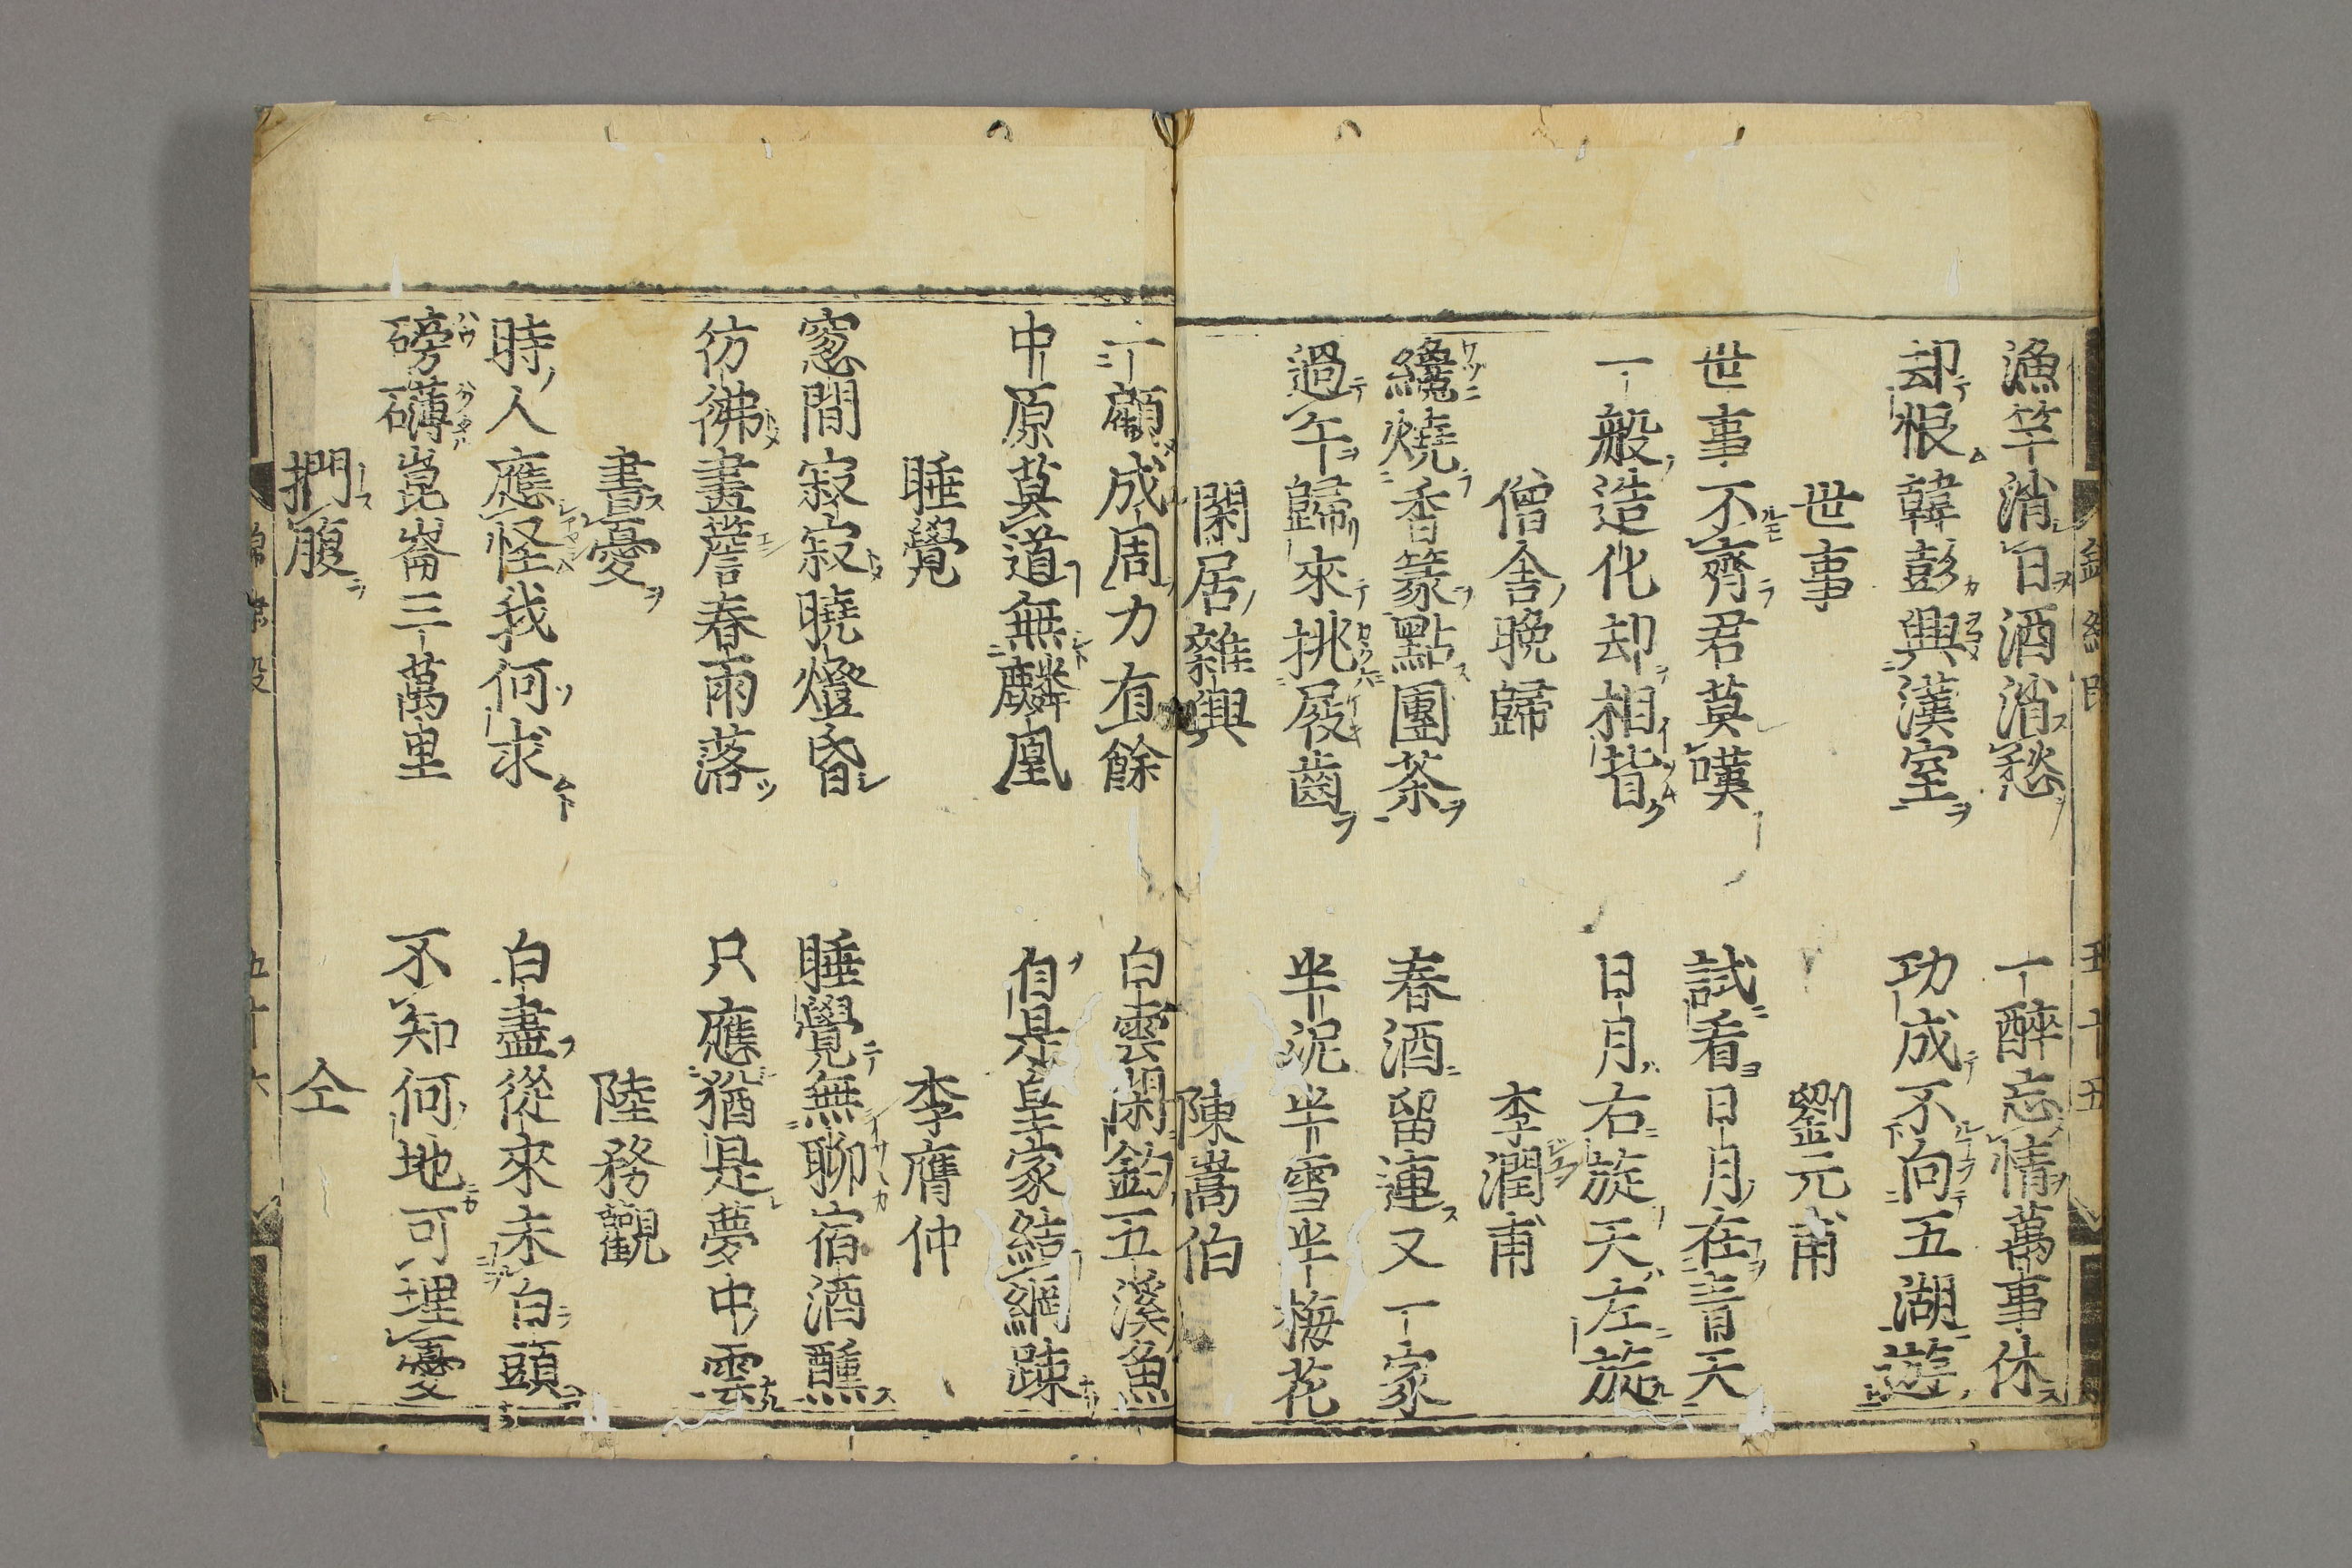 漁竿消日酒消愁　一醉忘情萬事休
却恨韓彭興漢室　功成不向五湖遊
世事　劉元甫
世事不齊君莫嘆　試看日月在青天
一般造化却相背　日月右旋天左旋
僧舎晩歸　李潤甫
纔燒香篆點團茶　春酒留連又一家
過午歸來挑屐齒　半泥半雪半梅花
閑居雜興　陳嵩伯
一顧成周力有餘　白雲閑釣五溪魚
中原莫道無麟凰　自是皇家結網踈
睡覺　李膺仲
窓間寂寂曉燈昏　睡覺無聊宿酒醺
彷彿畫簷春雨落　只應猶是夢中雲
書憂　陸務觀
時人應怪我何求　白盡從來未白頭
磅礴崑崙三萬里　不知何地可埋憂
捫腹　仝
五十五
五十六